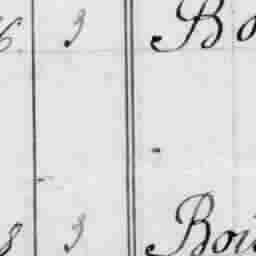 6 3 Bo
8 3 Boi